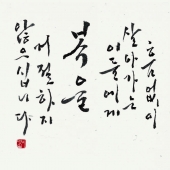 흠 없이
살아가는
이들에게
복을
거절하지
않으십니다